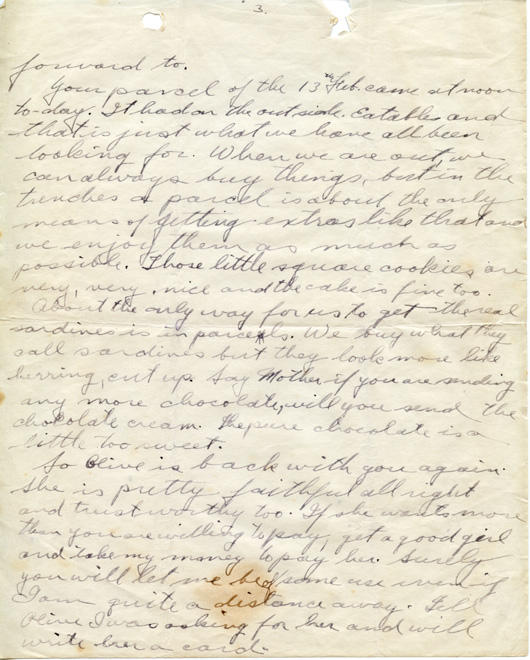 3.
forward to.
Your parcel of the 13th Feb. came at noon
to-day. It had on the outside. Eatables and
that is just what we have all been
looking for. When we are out, we
can always buy things, but in the
trenches a parcel is about the only
means of getting extras like that and
we enjoy them as much as
possible. Those little square cookies are
very, very, nice and the cake is fine too.
About the only way for us to get the real
sardines is in parcels. We buy what they
call sardines but they look more like
herring, cut up. Say Mother, if you are sending
any more chocolate, will you send the
chocolate cream. The pure chocolate is a
little too sweet.
So Olive is back with you again.
She is pretty faithful all right
and trustworthy too. If she wants more
than you are willing to pay, get a good girl
and take my money to pay her. Surely
you will let me be of some use even if
I am quite a distance away. Tell
Olive I was asking for her and will
write her a card.